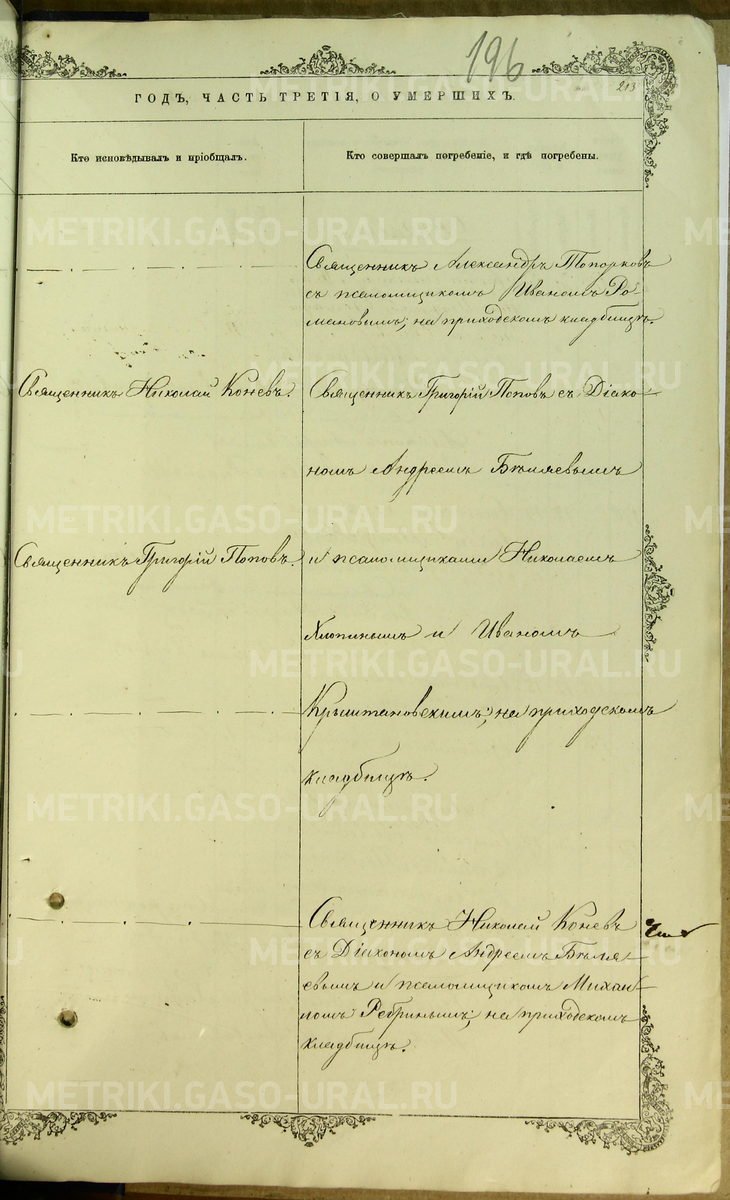 196
213
ГОДЪ, ЧАСТЬ ТРЕТІЯ, О УМЕРШИХЪ.
Кто исповѣдывалъ и пріобщалъ.
Кто совершалъ погребеніе, и гдѣ погребены.
Священникъ Александръ Топорковъ
съ псаломщикомъ Иваномъ Ро-
мановымъ; на приходскомъ кладбищѣ.
Священникъ Николай Коневъ.
Священникъ Григорій Поповъ съ Діако-
номъ Андреемъ Бѣляевымъ
Священникъ Григорій Поповъ.
и псаломщиками Николаемъ
Хлопинымъ и Иваномъ
Крыштановскимъ; на приходскомъ
кладбищѣ.
Священникъ Николай Коневъ
съ Діакономъ Андреемъ Бѣля-
евымъ и псаломщикомъ Михаи-
ломъ Ребринымъ; на приходскомъ
кладбищѣ.
METRIKI.GASO-URAL.RU